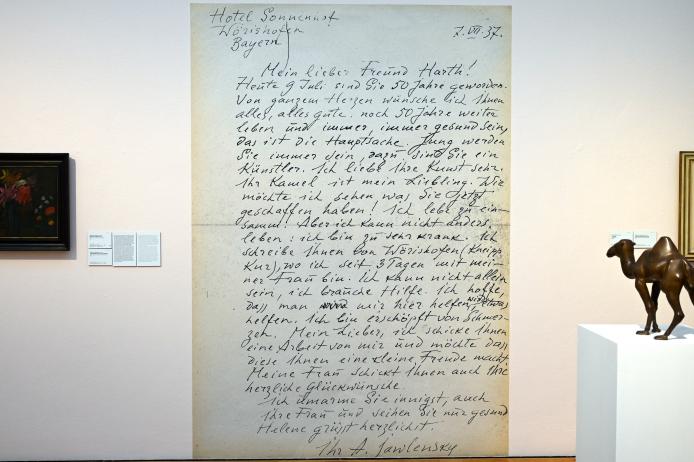 Hotel Sonnenhof
Wörishofen
Bayern
7. VII. 37.
Mein lieber Freund Harth!
Heute 9 Juli sind Sie 50 Jahre geworden.
Von ganzem Herzen wünsche ich Ihnen
alles, alles gute. noch 50 Jahre weiter
leben und immer, immer gesund sein,
das ist die Hauptsache. Jung werden
Sie immer sein, dazu sind Sie ein
Künstler. Ich liebe Ihre Kunst sehr.
Ihr Kamel ist mein Liebling. Wie
möchte ich sehen was Sie jetzt
geschaffen haben! Ich lebe zu ein-
samm! Aber ich kann nicht anders
leben: ich bin zu sehr krank. Ich
schreibe Ihnen von Wörishofen (Kneipp
Kur), wo ich seit 3 Tagen mit mei-
ner Frau bin. Ich kann nicht allein
sein, ich brauche Hilfe. Ich hoffe,
dass man mir hier helfen, wird etwas
helfen. Ich bin erschöpft von Schmer-
zen. Mein Lieber, ich schicke Ihnen
eine Arbeit von mir und möchte dass
diese Ihnen eine kleine Freude macht
Meine Frau schickt Ihnen auch Ihre
herzliche Glückwünsche.
Ich umarme Sie innigst, auch
Ihre Frau und seihen Sie nur gesund
Helene grüsst herzlichst.
Ihr A. Jawlensky